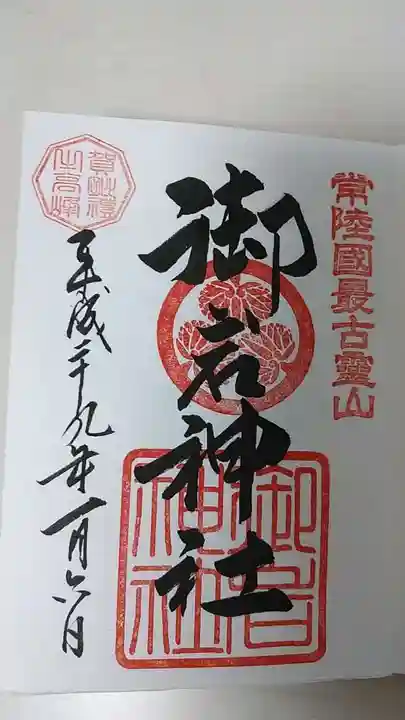 常陸國最古霊山
御岩神社
御岩神社
賀毗禮之高峰
平成二十九年一月六日